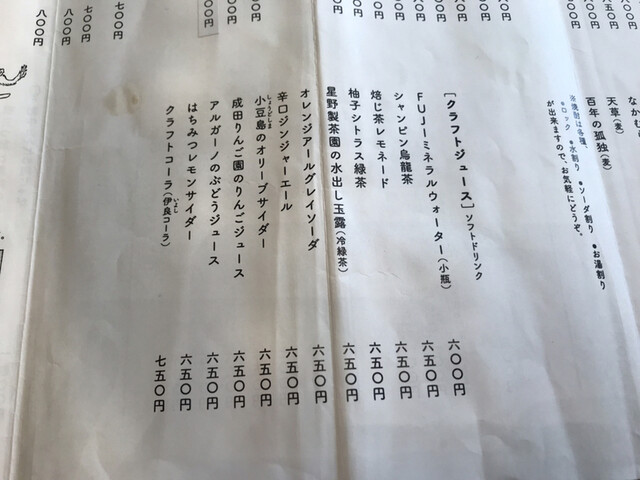 なかむ
天草（麦）
百年の孤独（麦）
※焼酎は各種、
●ロック ●水割り ●ソーダ割り ●お湯割り
が出来ますので、お気軽にどうぞ。
［クラフトジュース］ソフトドリンク
FUJIミネラルウォーター（小瓶） 六〇〇円
シャンピン烏龍茶 六五〇円
焙じ茶レモネード 六五〇円
柚子シトラス緑茶 六五〇円
星野製茶園の水出し玉露（冷緑茶） 六五〇円
オレンジアールグレイソーダ 六五〇円
辛口ジンジャーエール 六五〇円
小豆島のオリーブサイダー 六五〇円
しょうどしま
成田りんご園のりんごジュース 六五〇円
アルガーノのぶどうジュース 六五〇円
はちみつレモンサイダー 六五〇円
クラフトコーラ（伊良コーラ） 七五〇円
いよし
七〇〇円
七〇〇円
八〇〇円
八〇〇円